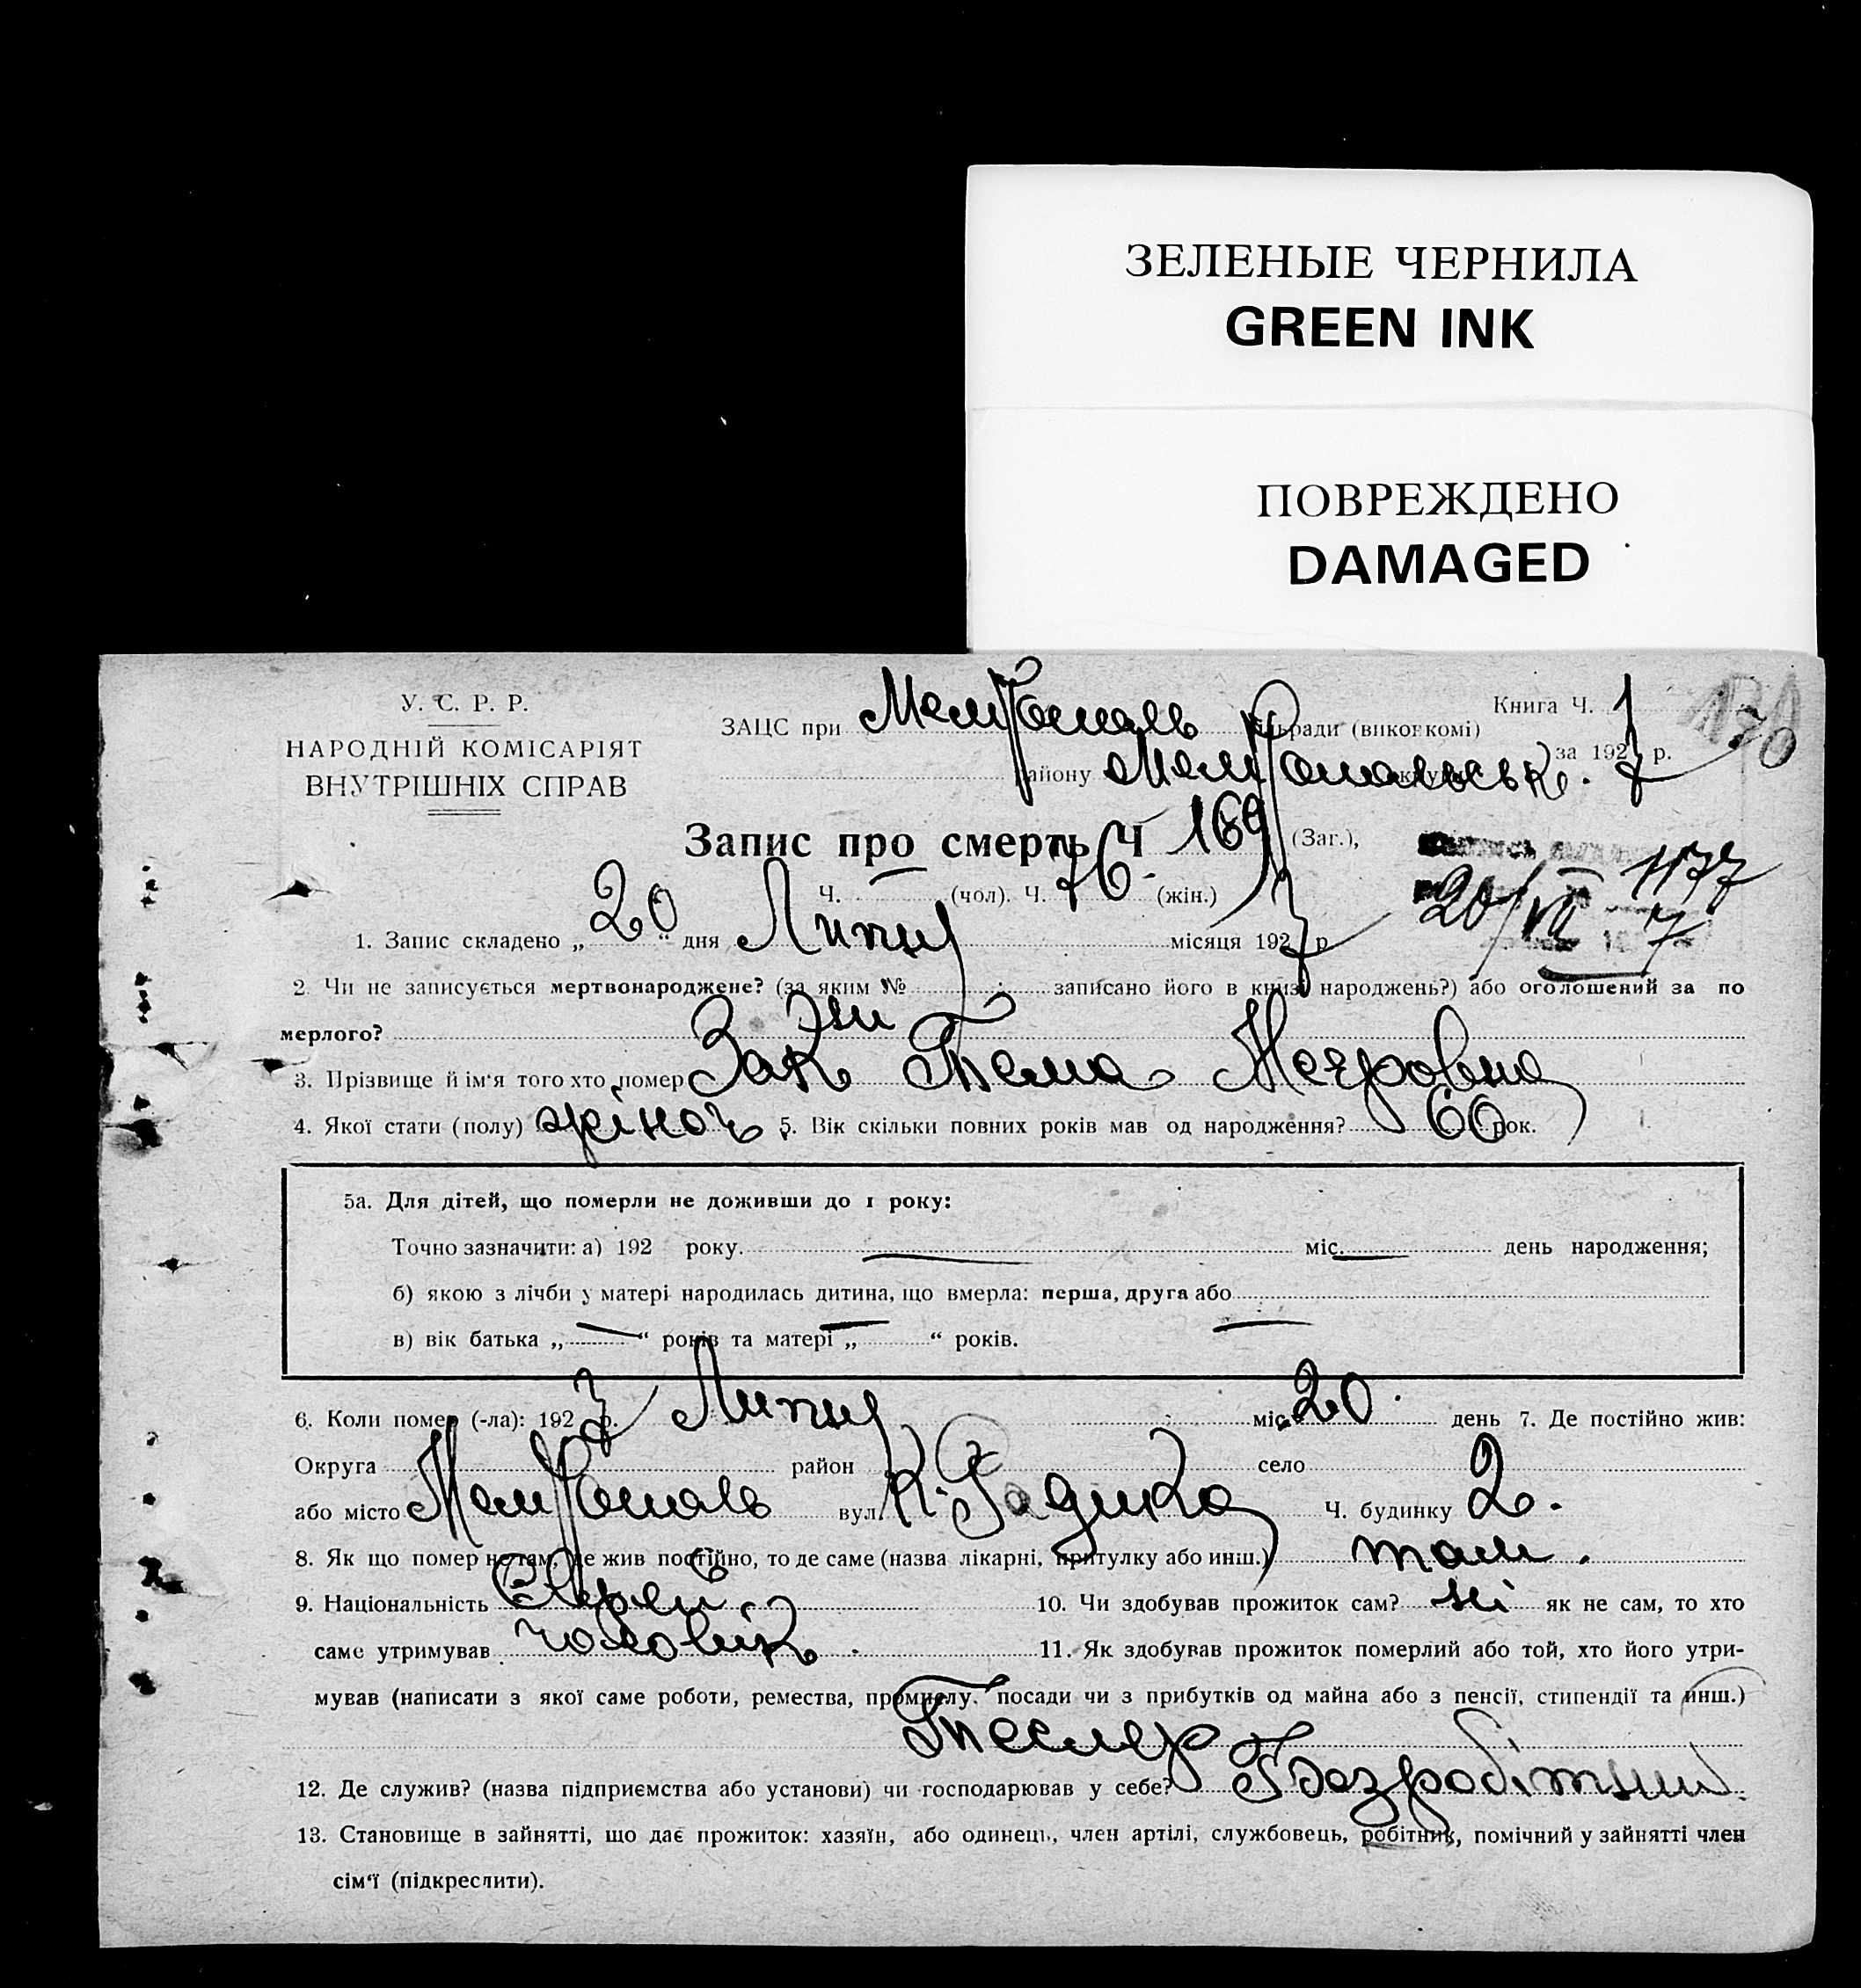 ЗЕЛЕНЫЕ ЧЕРНИЛА
GREEN INK
ПОВРЕЖДЕНО
DAMAGED
У. С. Р. Р.
НАРОДНІЙ КОМІСАРІЯТ
ВНУТРІШНІХ СПРАВ
ЗАЦС при Мелітополь ради (виконкомі)
Книга Ч. 1
170
району Мелітопольськ. за 1927 р.
Запис про смерть Ч 169 (Заг.),
Ч. — (чол). Ч. 76. (жін.)
1177
20/VII 7
1. Запис складено „20“ дня Липня місяця 1927 р
2. Чи не записується мертвонароджене? (за яким № записано його в книзі народжень?) або оголошений за по
мерлого? Ни
3. Прізвище й ім'я того хто помер Зак Бема Меєровна
4. Якої стати (полу) жіноч. 5. Вік скільки повних років мав од народження? 60 рок.
5а. Для дітей, що померли не доживши до 1 року:
Точно зазначити: а) 192 року. — міс. — день народження;
б) якою з лічби у матері народилась дитина, що вмерла: перша, друга або —
в) вік батька „—“ років та матері „—“ років.
6. Коли помер (-ла): 1927 р. Липня міс. 20 день 7. Де постійно жив:
Округа район село
або місто Мелітополь вул. К. Ч. будинку 2.
8. Як що помер не там, де жив постійно, то де саме (назва лікарні, притулку або инш.) там.
9. Національність Єврей 10. Чи здобував прожиток сам? ні як не сам, то хто
саме утримував чоловік. 11. Як здобував прожиток померлий або той, хто його утри-
мував (написати з якої саме роботи, ремества, промислу, посади чи з прибутків од майна або з пенсії, стипендії та инш.)
12. Де служив? (назва підприємства або установи) чи господарював у себе? Безробітний.
13. Становище в зайнятті, що дає прожиток: хазяїн, або одинець, член артілі, службовець, робітник, помічний у зайнятті член
сім'ї (підкреслити).